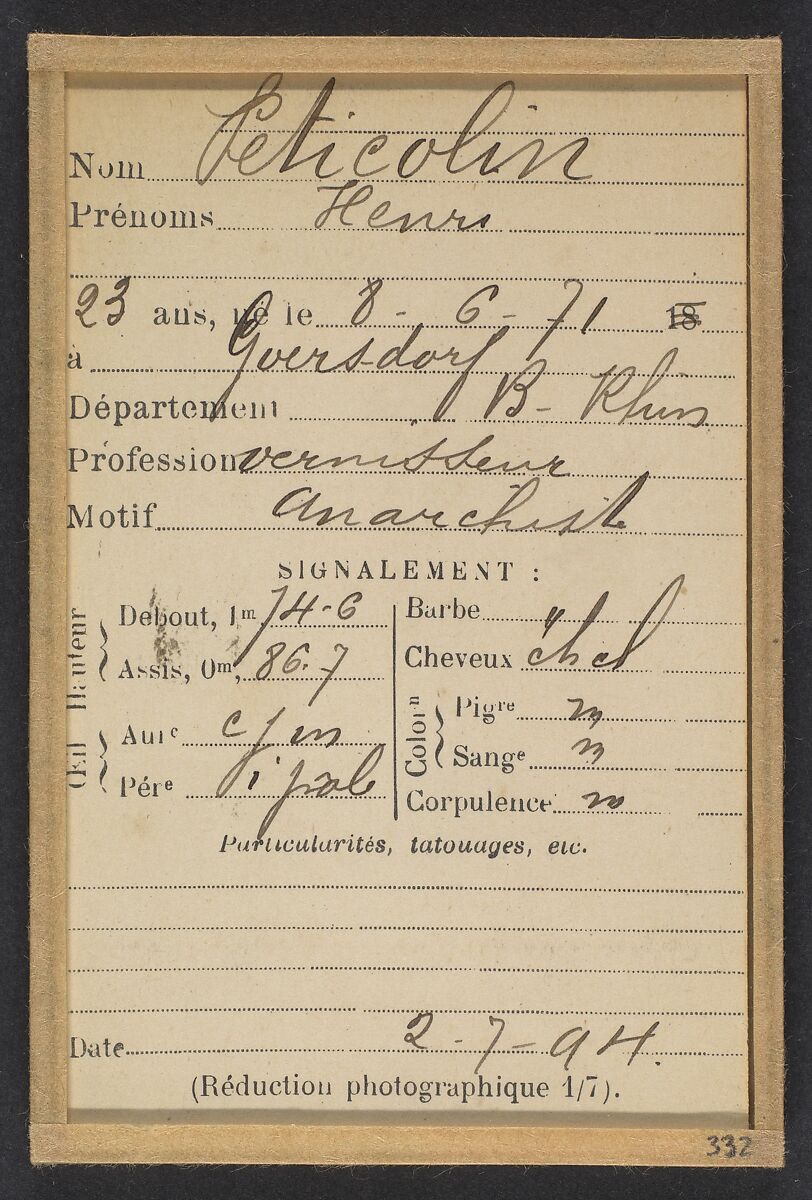 Nom Peticolin
Prénoms Henri
23 ans, né le 8 - 6 - 71 18
à Goersdorf
Département B - Rhin
Profession vernisseur
Motif Anarchiste
SIGNALEMENT :
Hauteur
Debout, 1m, 74-6
Assis, 0m, 86.7
Œil
Aurᵉ c j m
Périᵉ i
Barbe
Cheveux ch cl
Colorⁿ
Pigʳᵉ m
Sangᵉ m
Corpulence m
Particularités, tatouages, etc.
Date 2 - 7 - 94.
(Réduction photographique 1/7).
332